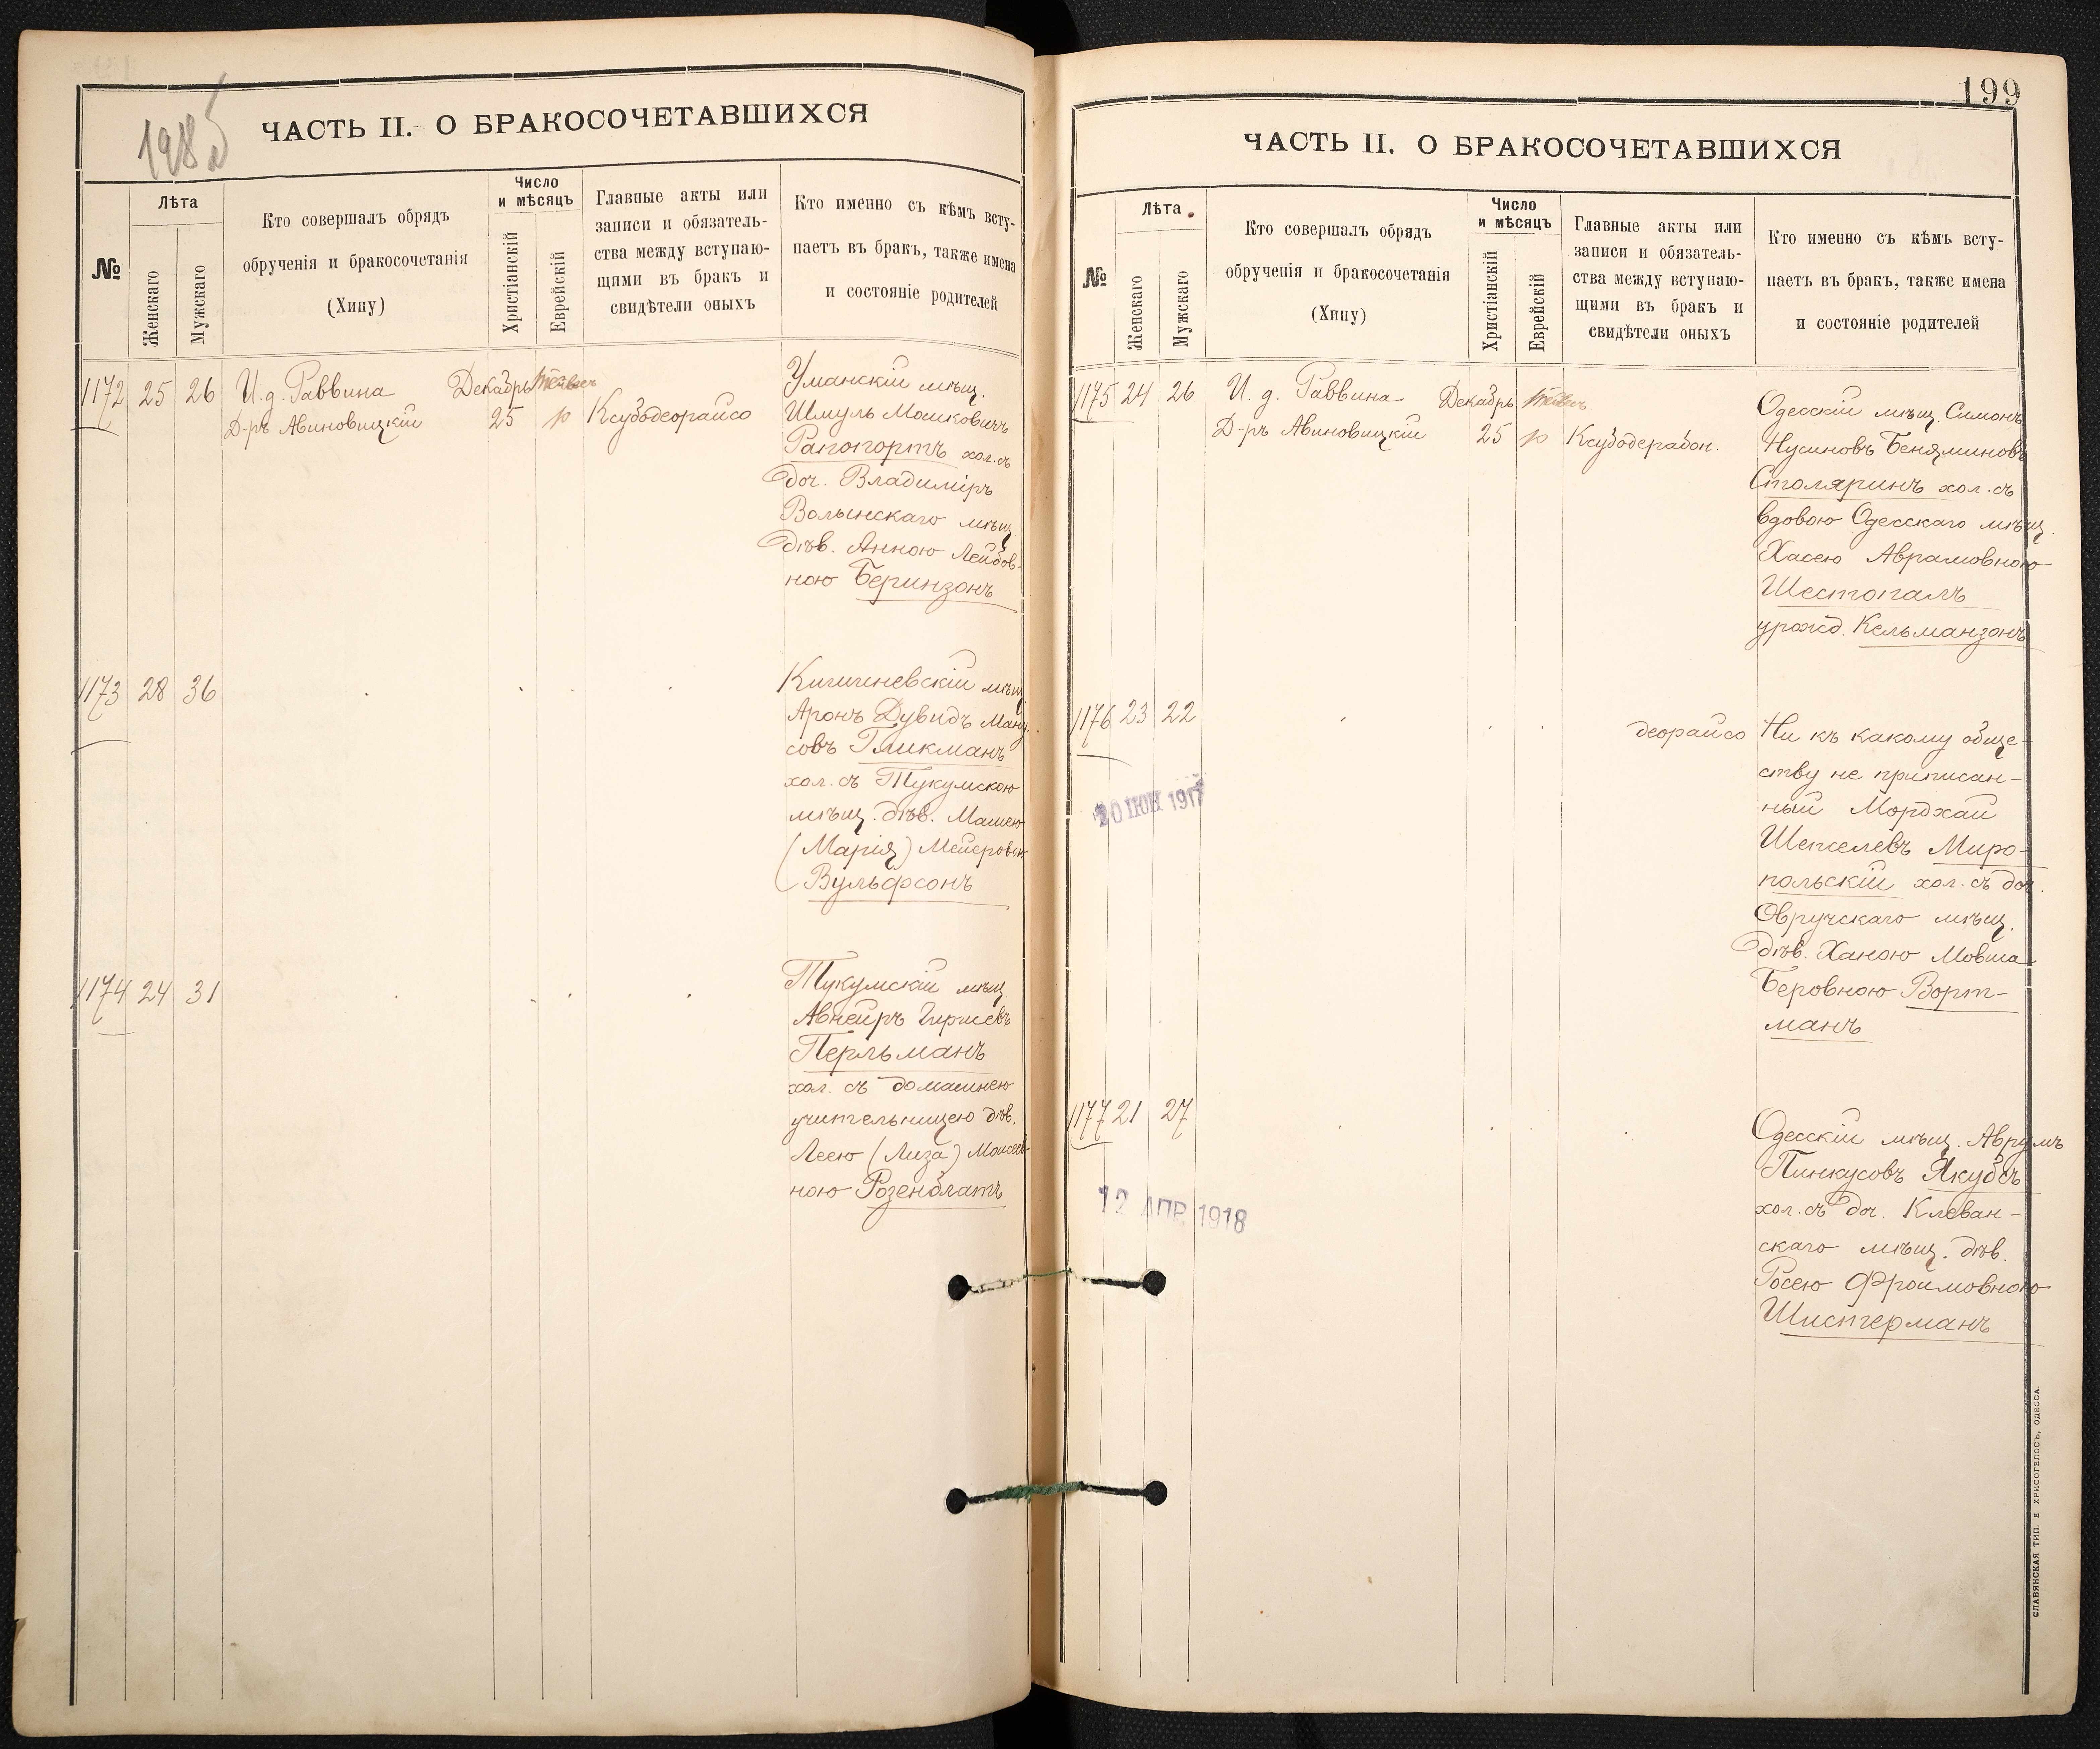 198б
ЧАСТЬ II. О БРАКОСОЧЕТАВШИХСЯ
№
Лѣта
Женскаго
Мужскаго
Кто совершалъ обрядъ
обрученія и бракосочетанія
(Хипу)
Число
и мѣсяцъ
Христіанскій
Еврейскій
Главные акты или
записи и обязатель-
ства между вступаю-
щими въ бракъ и
свидѣтели оныхъ
Кто именно съ кѣмъ всту-
паетъ въ бракъ, также имена
и состояніе родителей
1172 25 26 И. д. Раввина Декабрь
Д-ръ Авиновицкій 25 Ксубодеорайсо
Уманскій мѣщ.
Шмуль Мошковичъ
Рапопортъ хол. съ
доч. Владиміръ
Волынскаго мѣщ.
дѣв. Анною Лейбов-
ною Беринзонъ
1173 28 36
Кишиневскій мѣщ
Аронъ Дувидъ Ману-
совъ Гликманъ
хол. съ Тукумскою
мѣщ. дѣв. Машею
(Марія) Мейеровон
Вульфсонъ
1174 24 31
Тукумскій мѣщ
Авнейръ Гиршевъ
Перльманъ
хол. съ домашнею
учительницею дѣв.
Леею (Лиза) Моисеев-
ною Розенблатъ
199
ЧАСТЬ II. О БРАКОСОЧЕТАВШИХСЯ
№
Лѣта
Женскаго
Мужскаго
Кто совершалъ обрядъ
обрученія и бракосочетанія
(Хипу)
Число
и мѣсяцъ
Христіанскій
Еврейскій
Главные акты или
записи и обязатель-
ства между вступаю-
щими въ бракъ и
свидѣтели оныхъ
Кто именно съ кѣмъ всту-
паетъ въ бракъ, также имена
и состояніе родителей
1175 24 26 И. д. Раввина Декабрь
Д-ръ Авиновицкій 25 Ксубодерабон.
Одесскій мѣщ. Симонъ
Нусиновъ Беняминовъ
Столяринъ хол. съ
вдовою Одесскаго мѣщ.
Хасею Аврамовною
Шестопалъ
урожд. Кельманзонъ
1176 23 22 деорайсо
Ни къ какому обще-
ству не приписан-
ный Мордхай
Шепселевъ Миро-
польскій хол. съ доч.
Овручскаго мѣщ.
дѣв. Ханою Мовша-
Беровною Ворт-
манъ
20 ІЮН 1917
1177 21 27
Одесскій мѣщ. Аврумъ
Пинкусовъ Якубъ
хол. съ доч. Клеван-
скаго мѣщ. дѣв.
Росею Фроимовною
Шистерманъ
12 АПР 1918
СЛАВЯНСКАЯ ТИП. Е ХРИСОГЕЛОСЪ, ОДЕССА.